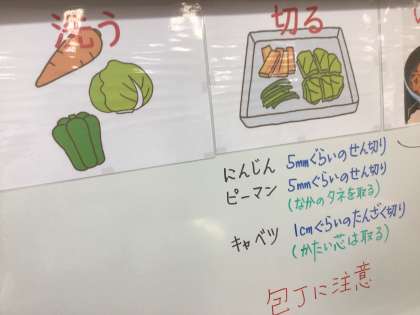 洗う
切る
にんじん 5mmぐらいのせん切り
ピーマン 5mmぐらいのせん切り
(なかのタネを取る)
キャベツ 1cmぐらいのたんざく切り
(かたい芯は取る)
包丁に注意